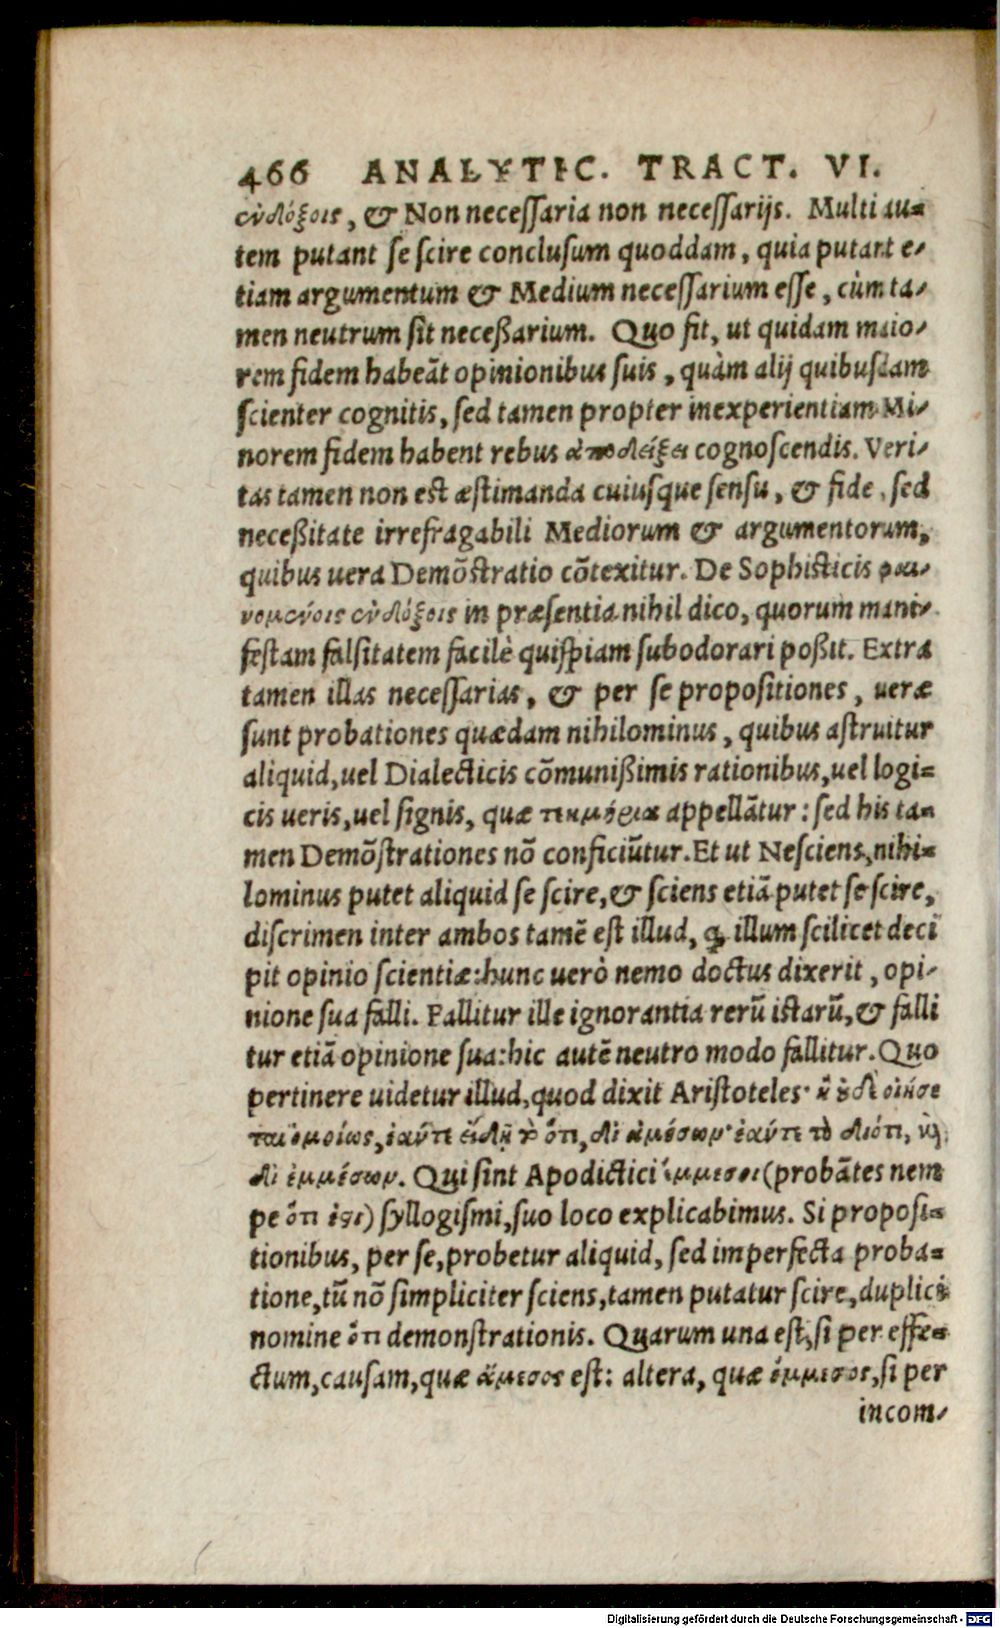 466 ANALYTIC. TRACT. VI.
ἐνδόξοις, & Non necessaria non necessarijs. Multi au=
tem putant se scire conclusum quoddam, quia putant e-
tiam argumentum & Medium necessarium esse, cùm ta-
men neutrum sit neceßarium. Quo fit, ut quidam maio-
rem fidem habeāt opinionibus suis, quàm alij quibusdam
scienter cognitis, sed tamen propter inexperientiam Mi-
norem fidem habent rebus ἀποδείξει cognoscendis. Veri-
tas tamen non est æstimanda cuiusque sensu, & fide, sed
neceßitate irrefragabili Mediorum & argumentorum,
quibus uera Demōstratio cōtexitur. De Sophisticis φαι-
νομένοις ἐνδόξοις in præsentia nihil dico, quorum mani-
festam falsitatem facilè quispiam subodorari poßit. Extra
tamen illas necessarias, & per se propositiones, ueræ
sunt probationes quædam nihilominus, quibus astruitur
aliquid, uel Dialecticis cōmunißimis rationibus, uel logi=
cis ueris, uel signis, quæ τεκμήρια appellātur: sed his ta=
men Demōstrationes nō conficiūtur. Et ut Nesciens, nihi=
lominus putet aliquid se scire, & sciens etiā putet se scire,
discrimen inter ambos tamē est illud, ꝙ illum scilicet deci
pit opinio scientiæ: hunc uerò nemo doctus dixerit, opi-
nione sua falli. Fallitur ille ignorantia rerū istarū, & falli
tur etiā opinione sua: hic autē neutro modo fallitur. Quo
pertinere uidetur illud, quod dixit Aristoteles· ἢ οὐδ' οἰήσε
ται ὁμοίως, ἐάντε εἰδῇ τὸ ὅτι, δι' ἀμέσων· ἐάντε τὸ διότι, καὶ
δι' ἐμμέσων. Qui sint Apodictici ἔμμεσοι (probātes nem
pe ὅτι ἐστι) syllogismi, suo loco explicabimus. Si proposi=
tionibus, per se, probetur aliquid, sed imperfecta proba=
tione, tū nō simpliciter sciens, tamen putatur scire, duplici
nomine ὅτι demonstrationis. Quarum una est, si per effe=
ctum, causam, quæ ἄμεσος est: altera, quæ ἔμμεσος, si per
incom-
Digitalisierung gefördert durch die Deutsche Forschungsgemeinschaft - DFG